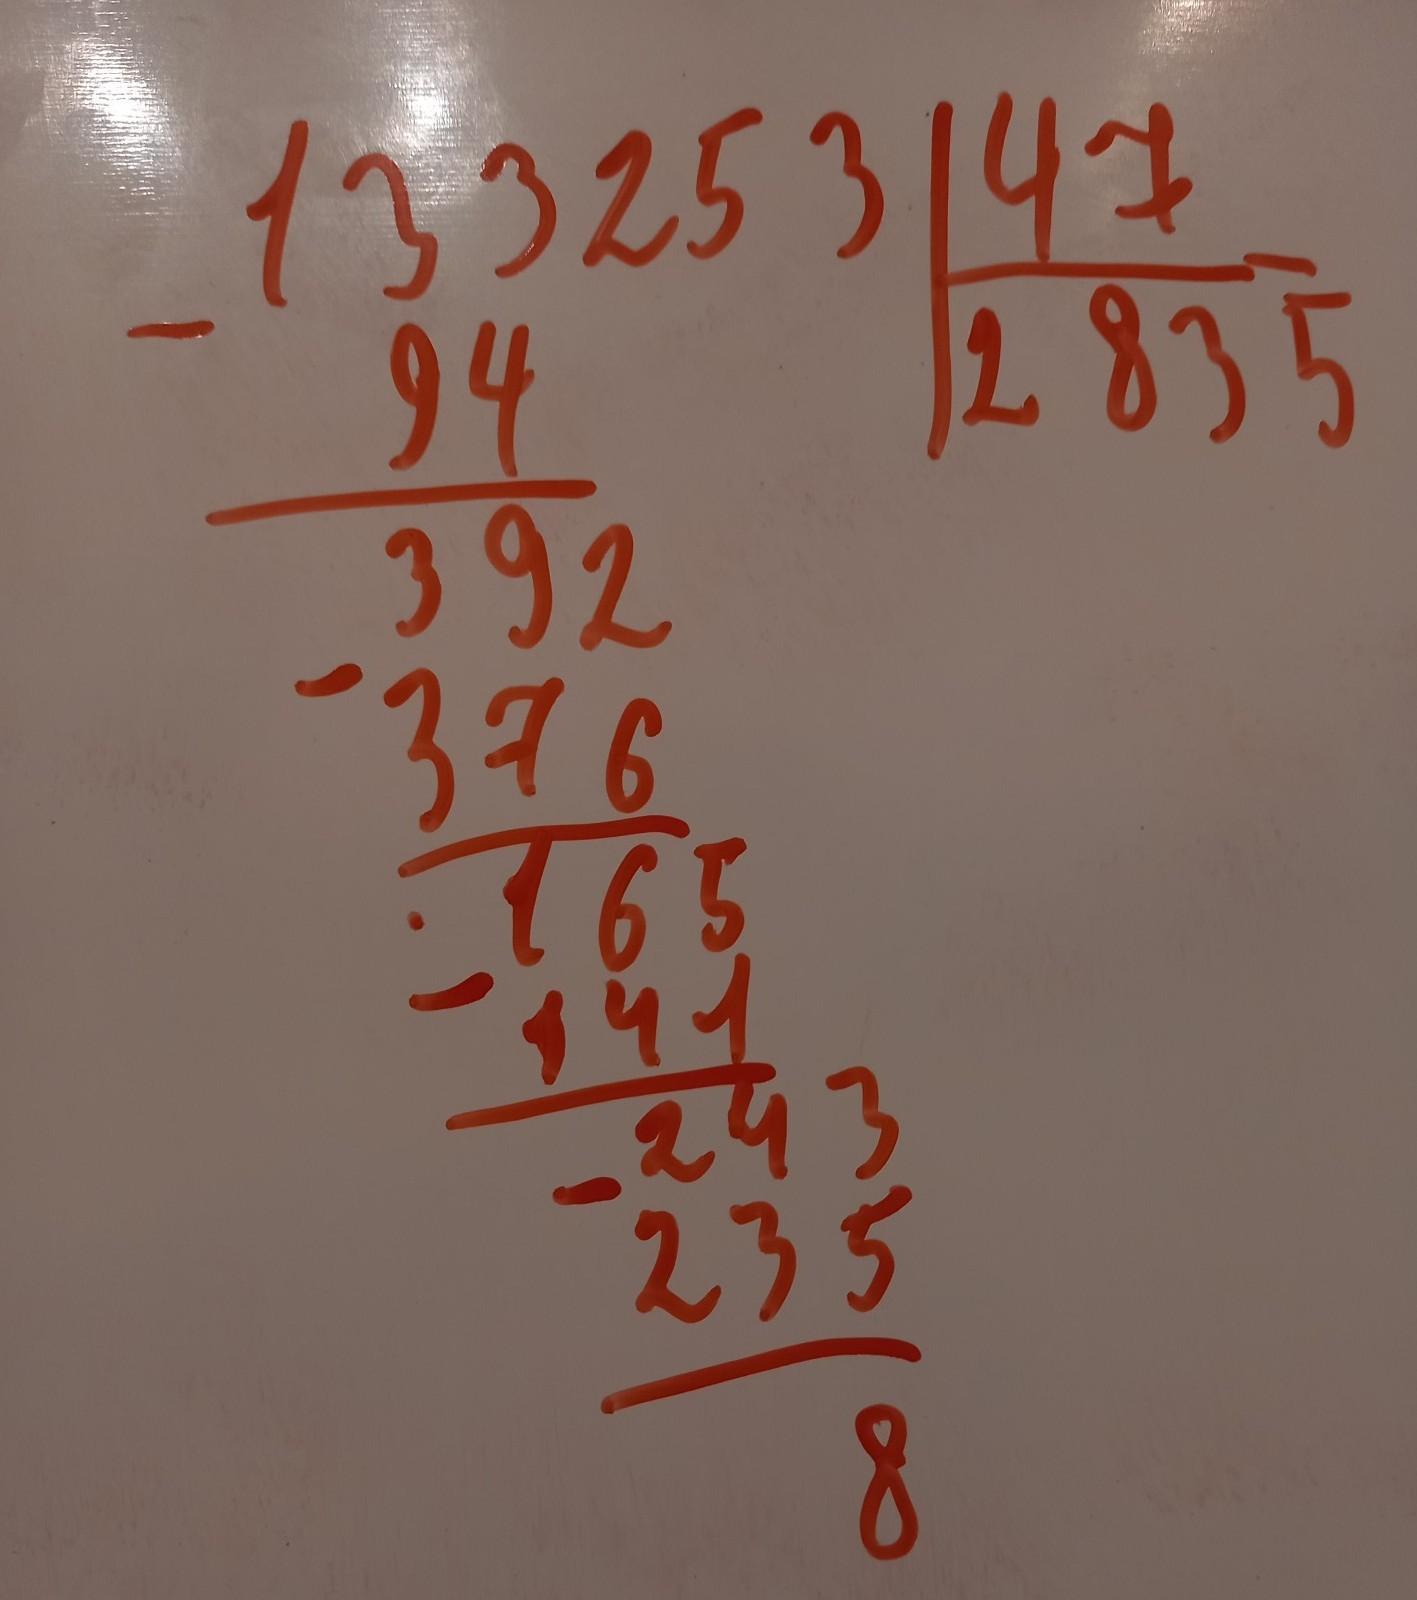 133253 47
- 2835
94
392
- 376
165
- 141
243
- 235
8